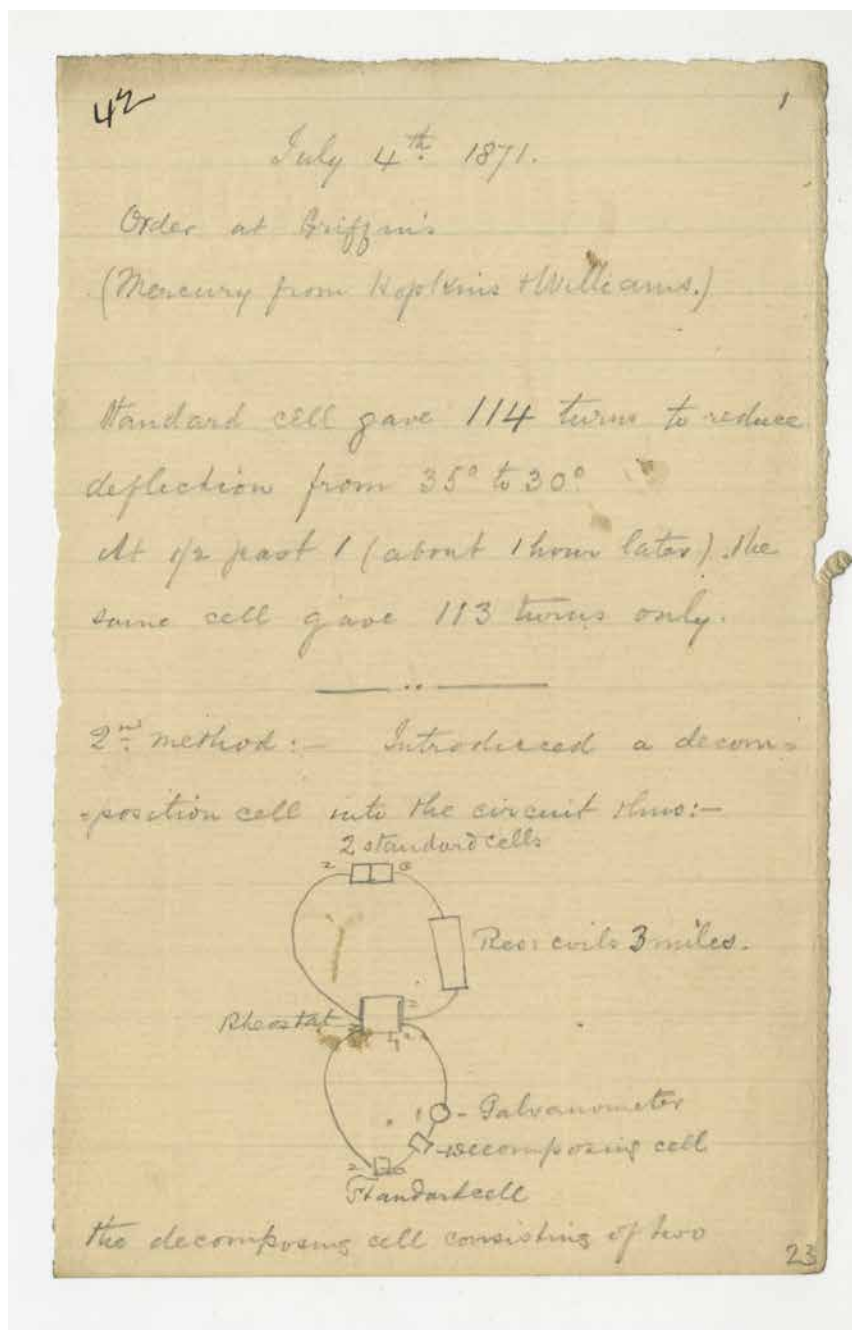 42
1
July 4th 1871.
Order at Griffin's
(Mercury from Hopkins & Williams.)
Standard cell gave 114 turns to reduce
deflection from 35° to 30°.
At 1/2 past 1 (about 1 hour later) the
same cell gave 113 turns only.
2nd method:— Introduced a decom=
=position cell into the circuit thus:—
2 standard cells
Z C
coils 3 miles.
Rheostat
Galvanometer
Decomposing cell
Standard cell
the decomposing cell consisting of two
23